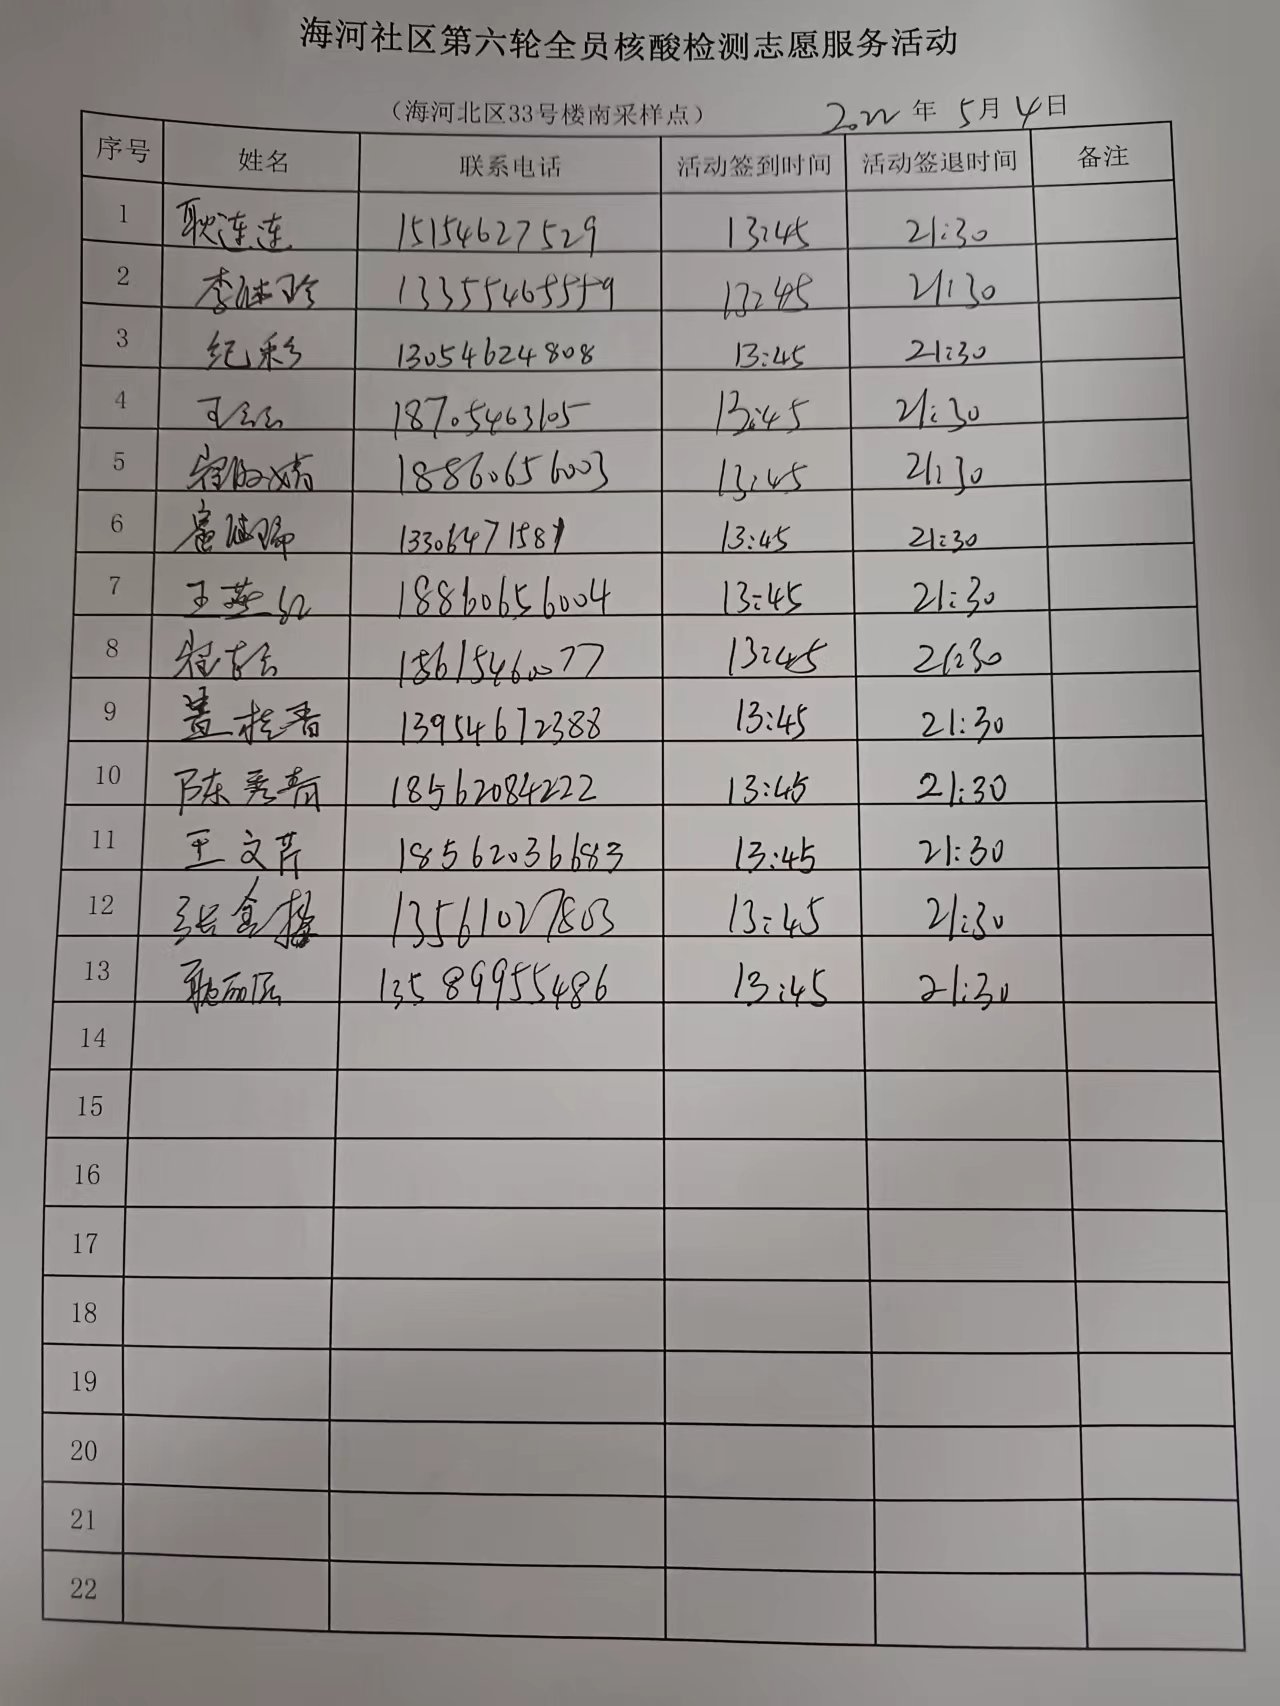 海河社区第六轮全员核酸检测志愿服务活动
（海河北区33号楼南采样点） 2022年5月4日
序号 姓名 联系电话 活动签到时间 活动签退时间 备注
1 耿连连 15154627529 13:45 21:30
2 李继玲 13355465559 13:45 21:30
3 纪彩 13054624808 13:45 21:30
4 王 18705463105 13:45 21:30
5 18860656003 13:45 21:30
6 13306471581 13:45 21:30
7 王燕红 18860656004 13:45 21:30
8 18615460077 13:45 21:30
9 盖桂香 13954672388 13:45 21:30
10 陈秀青 18562084222 13:45 21:30
11 王文芹 18562036683 13:45 21:30
12 张金梅 13561027803 13:45 21:30
13 13589955486 13:45 21:30
14
15
16
17
18
19
20
21
22